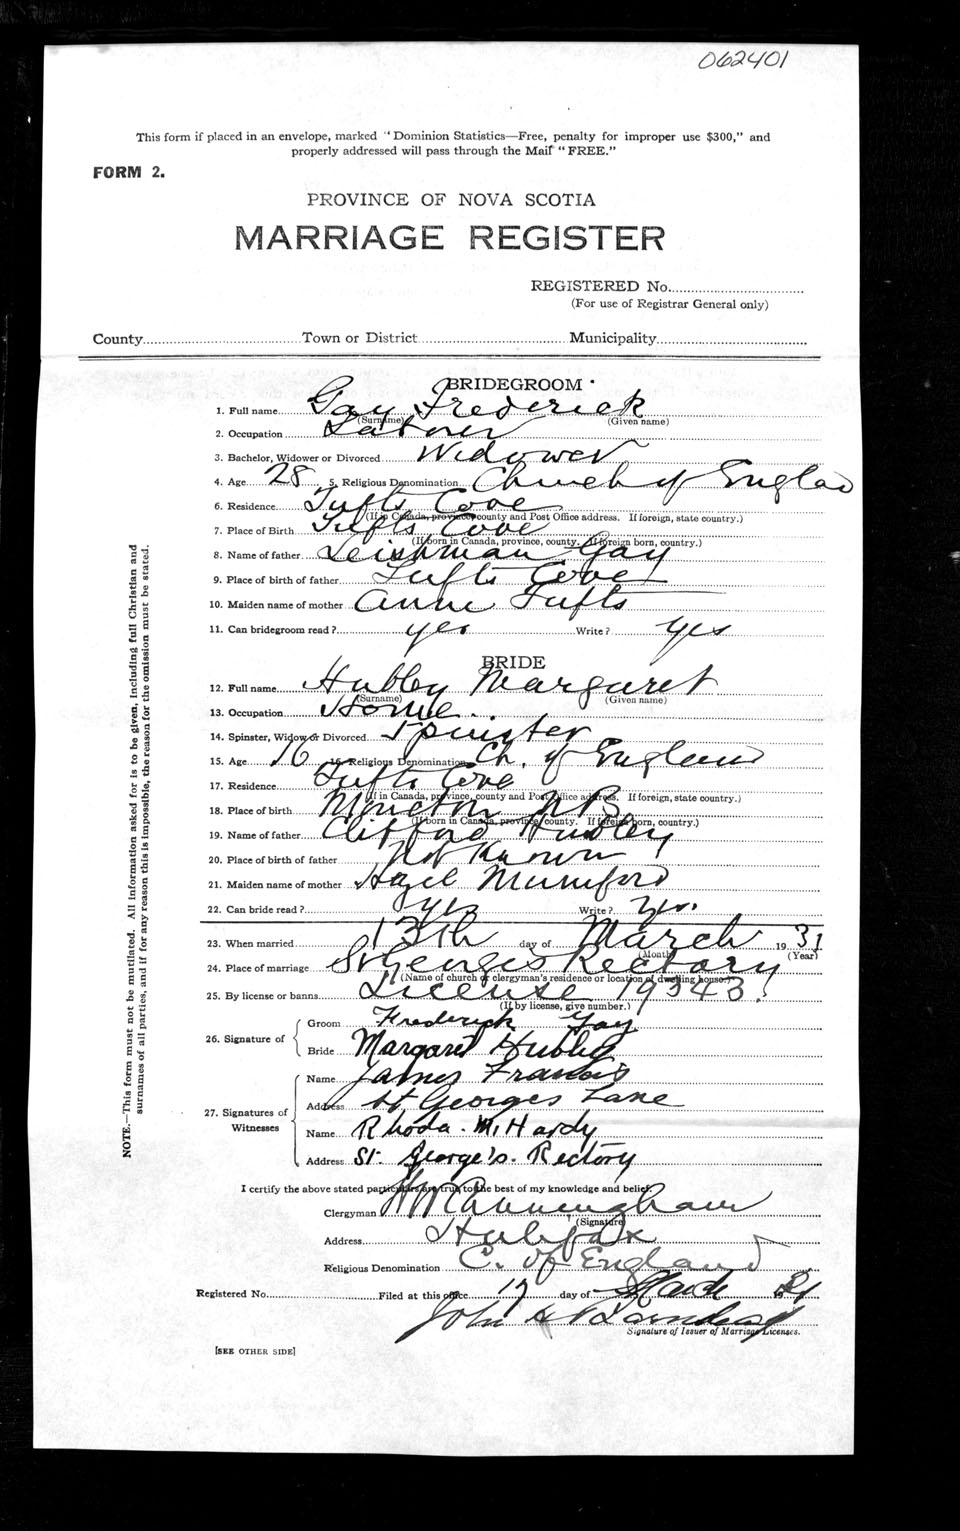 062401
This form if placed in an envelope, marked "Dominion Statistics—Free, penalty for improper use $300," and
properly addressed will pass through the Mail "FREE."
FORM 2.
PROVINCE OF NOVA SCOTIA
MARRIAGE REGISTER
REGISTERED No.
(For use of Registrar General only)
County Town or District Municipality
BRIDEGROOM
1. Full name Gay Frederick
(Surname) (Given name)
2. Occupation Laborer
3. Bachelor, Widower or Divorced Widower
4. Age 28 5. Religious Denomination Church of England
6. Residence Tufts Cove
(If in Canada, province, county and Post Office address. If foreign, state country.)
7. Place of Birth Tufts Cove
(If born in Canada, province, county. If foreign born, country.)
8. Name of father Leishman Gay
9. Place of birth of father Tufts Cove
10. Maiden name of mother Anne Tufts
11. Can bridegroom read? yes Write? yes
BRIDE
12. Full name Hubley Margaret
(Surname) (Given name)
13. Occupation Home
14. Spinster, Widow or Divorced Spinster
15. Age 16 16. Religious Denomination Ch. of England
17. Residence Tufts Cove
(If in Canada, province, county and Post Office address. If foreign, state country.)
18. Place of birth Moncton N B
(If born in Canada, province, county. If foreign born, country.)
19. Name of father Clifford Hubley
20. Place of birth of father Not Known
21. Maiden name of mother Hazel Mumford
22. Can bride read? yes Write? Yes.
23. When married 13th day of March 1931
(Month) (Year)
24. Place of marriage St Georges Rectory
(Name of church or clergyman's residence or location of dwelling house.)
25. By license or banns License 19343
(If by license, give number.)
26. Signature of
Groom Frederick Gay
Bride Margaret Hubley
27. Signatures of Witnesses
Name James Francis
Address St Georges Lane
Name Rhoda. M. Hardy
Address St. George's. Rectory
I certify the above stated particulars are true to the best of my knowledge and belief.
Clergyman H W Cunningham
(Signature)
Address Halifax
Religious Denomination C. of England
Registered No. Filed at this office 17 day of March 1931
John A
Signature of Issuer of Marriage Licenses.
[SEE OTHER SIDE]
NOTE.—This form must not be mutilated. All information asked for is to be given, including full Christian and
surnames of all parties, and if for any reason this is impossible, the reason for the omission must be stated.